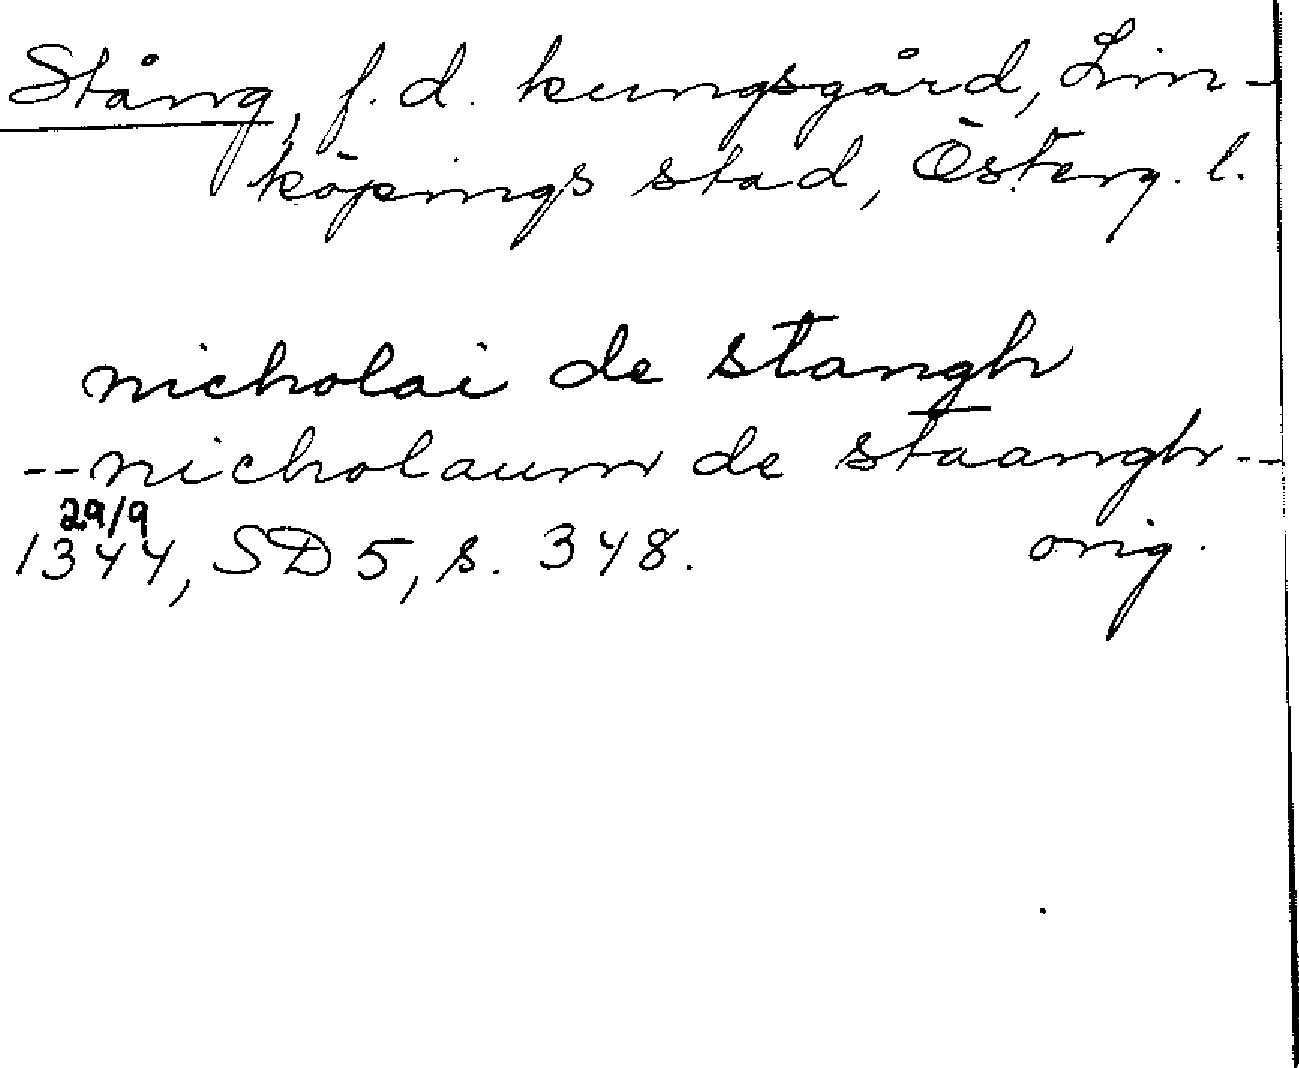 Stång, f.d. kungsgård, Lin-
köpings stad, Österg. l.
nicholai de stangh
--nicholaum de staangh--
29/9
1344, SD 5, s. 348. orig.